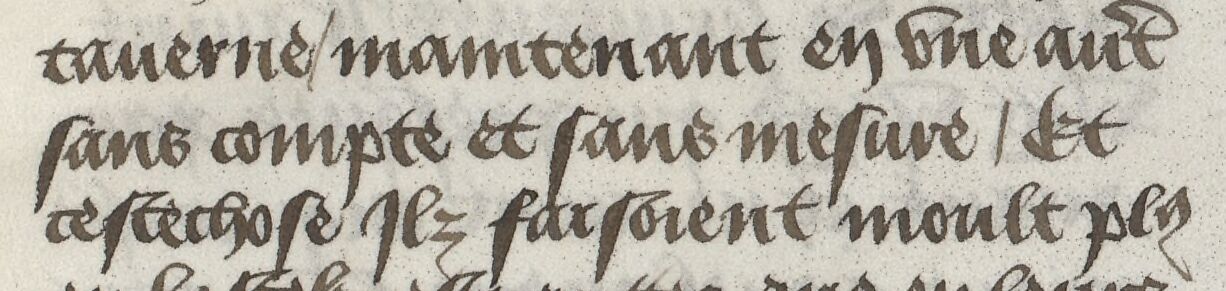 tauerne / maintenant en vne autre
sans compte et sans mesure / Et
ceste chose Ilz faisoient moult plus